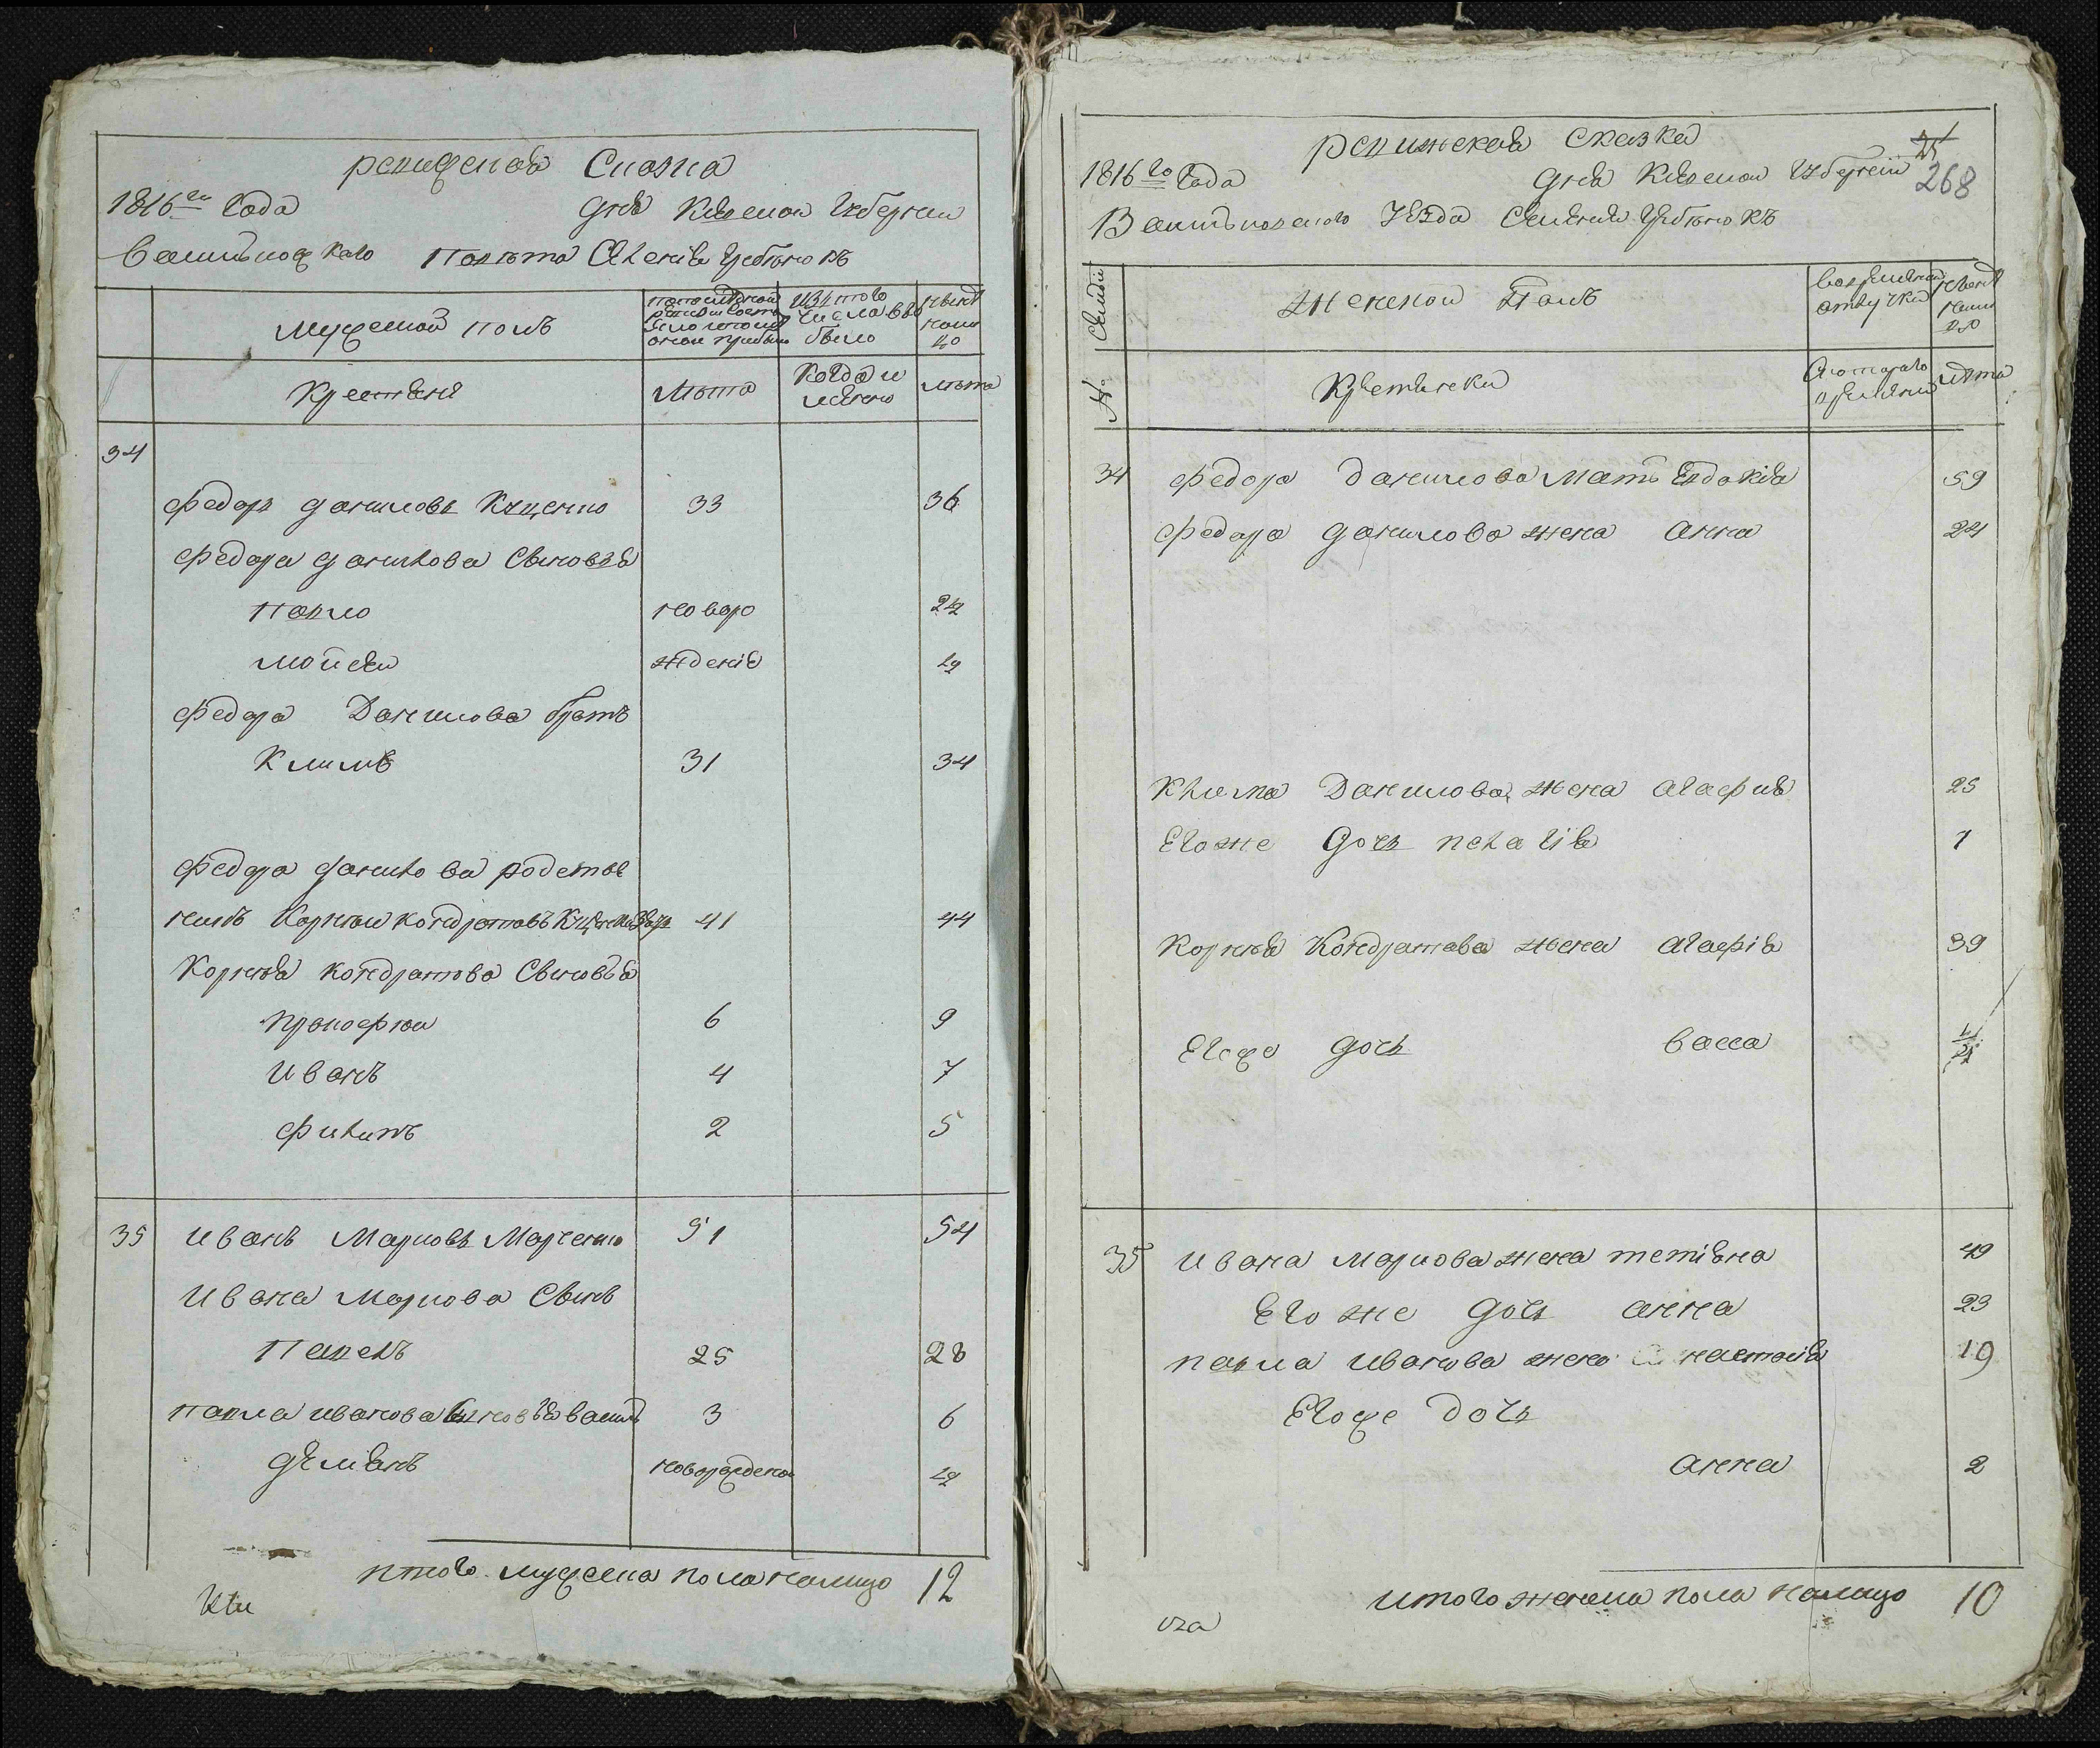 ревижская Сказка
1816го Года дня Киевской Губернии
Васильковскаго Повѣта Селенія Гребѣнокъ
мужеской полъ
Изъ того числа выбыло
нынѣ налицо
Крестьяне
лѣта
Когда и
лѣта
34
Федоръ Даниловъ Куценко 33 36
Федора Данилова Сыновья
Павло новоро 2 1/2
Мойсей жденіе 1/2
Федора Данилова братъ
Климъ 31 34
Федора Данилова родстве
никъ Корней Кондратовъ 41 44
Корнея Кондратова Сыновья
Прокофей 6 9
Иванъ 4 7
Филипъ 2 5
35 Иванъ Марковъ Марченко 51 54
Ивана Маркова Сынъ
Павелъ 25 28
Павла Иванова Сыновья Василь 3 6
Демянъ новорожденой 1/2
Итого мужеска пола налицо 12
ревижская Сказка
268
1816го Года дня Киевской Губерніи
Васильковскаго Уезда Селенія Гребѣнокъ
№ Семьи
женской полъ
во временной отлучки
нынѣ налицо
Крестьянски
С котораго времени
лѣта
34 Федора Данилова мать Евдокія 59
Федора Данилова жена Анна 24
Клима Данилова жена Агафия 25
Егоже дочь Пелагія 1
Корнея Кондратова жена Агафія 39
Егоже дочь Васса
35 Ивана Маркова жена Тетіяна 49
Егоже дочь Анна 23
Павла Иванова жена Анастасія 19
Егоже дочь
Анна 2
итого женска пола налицо 10